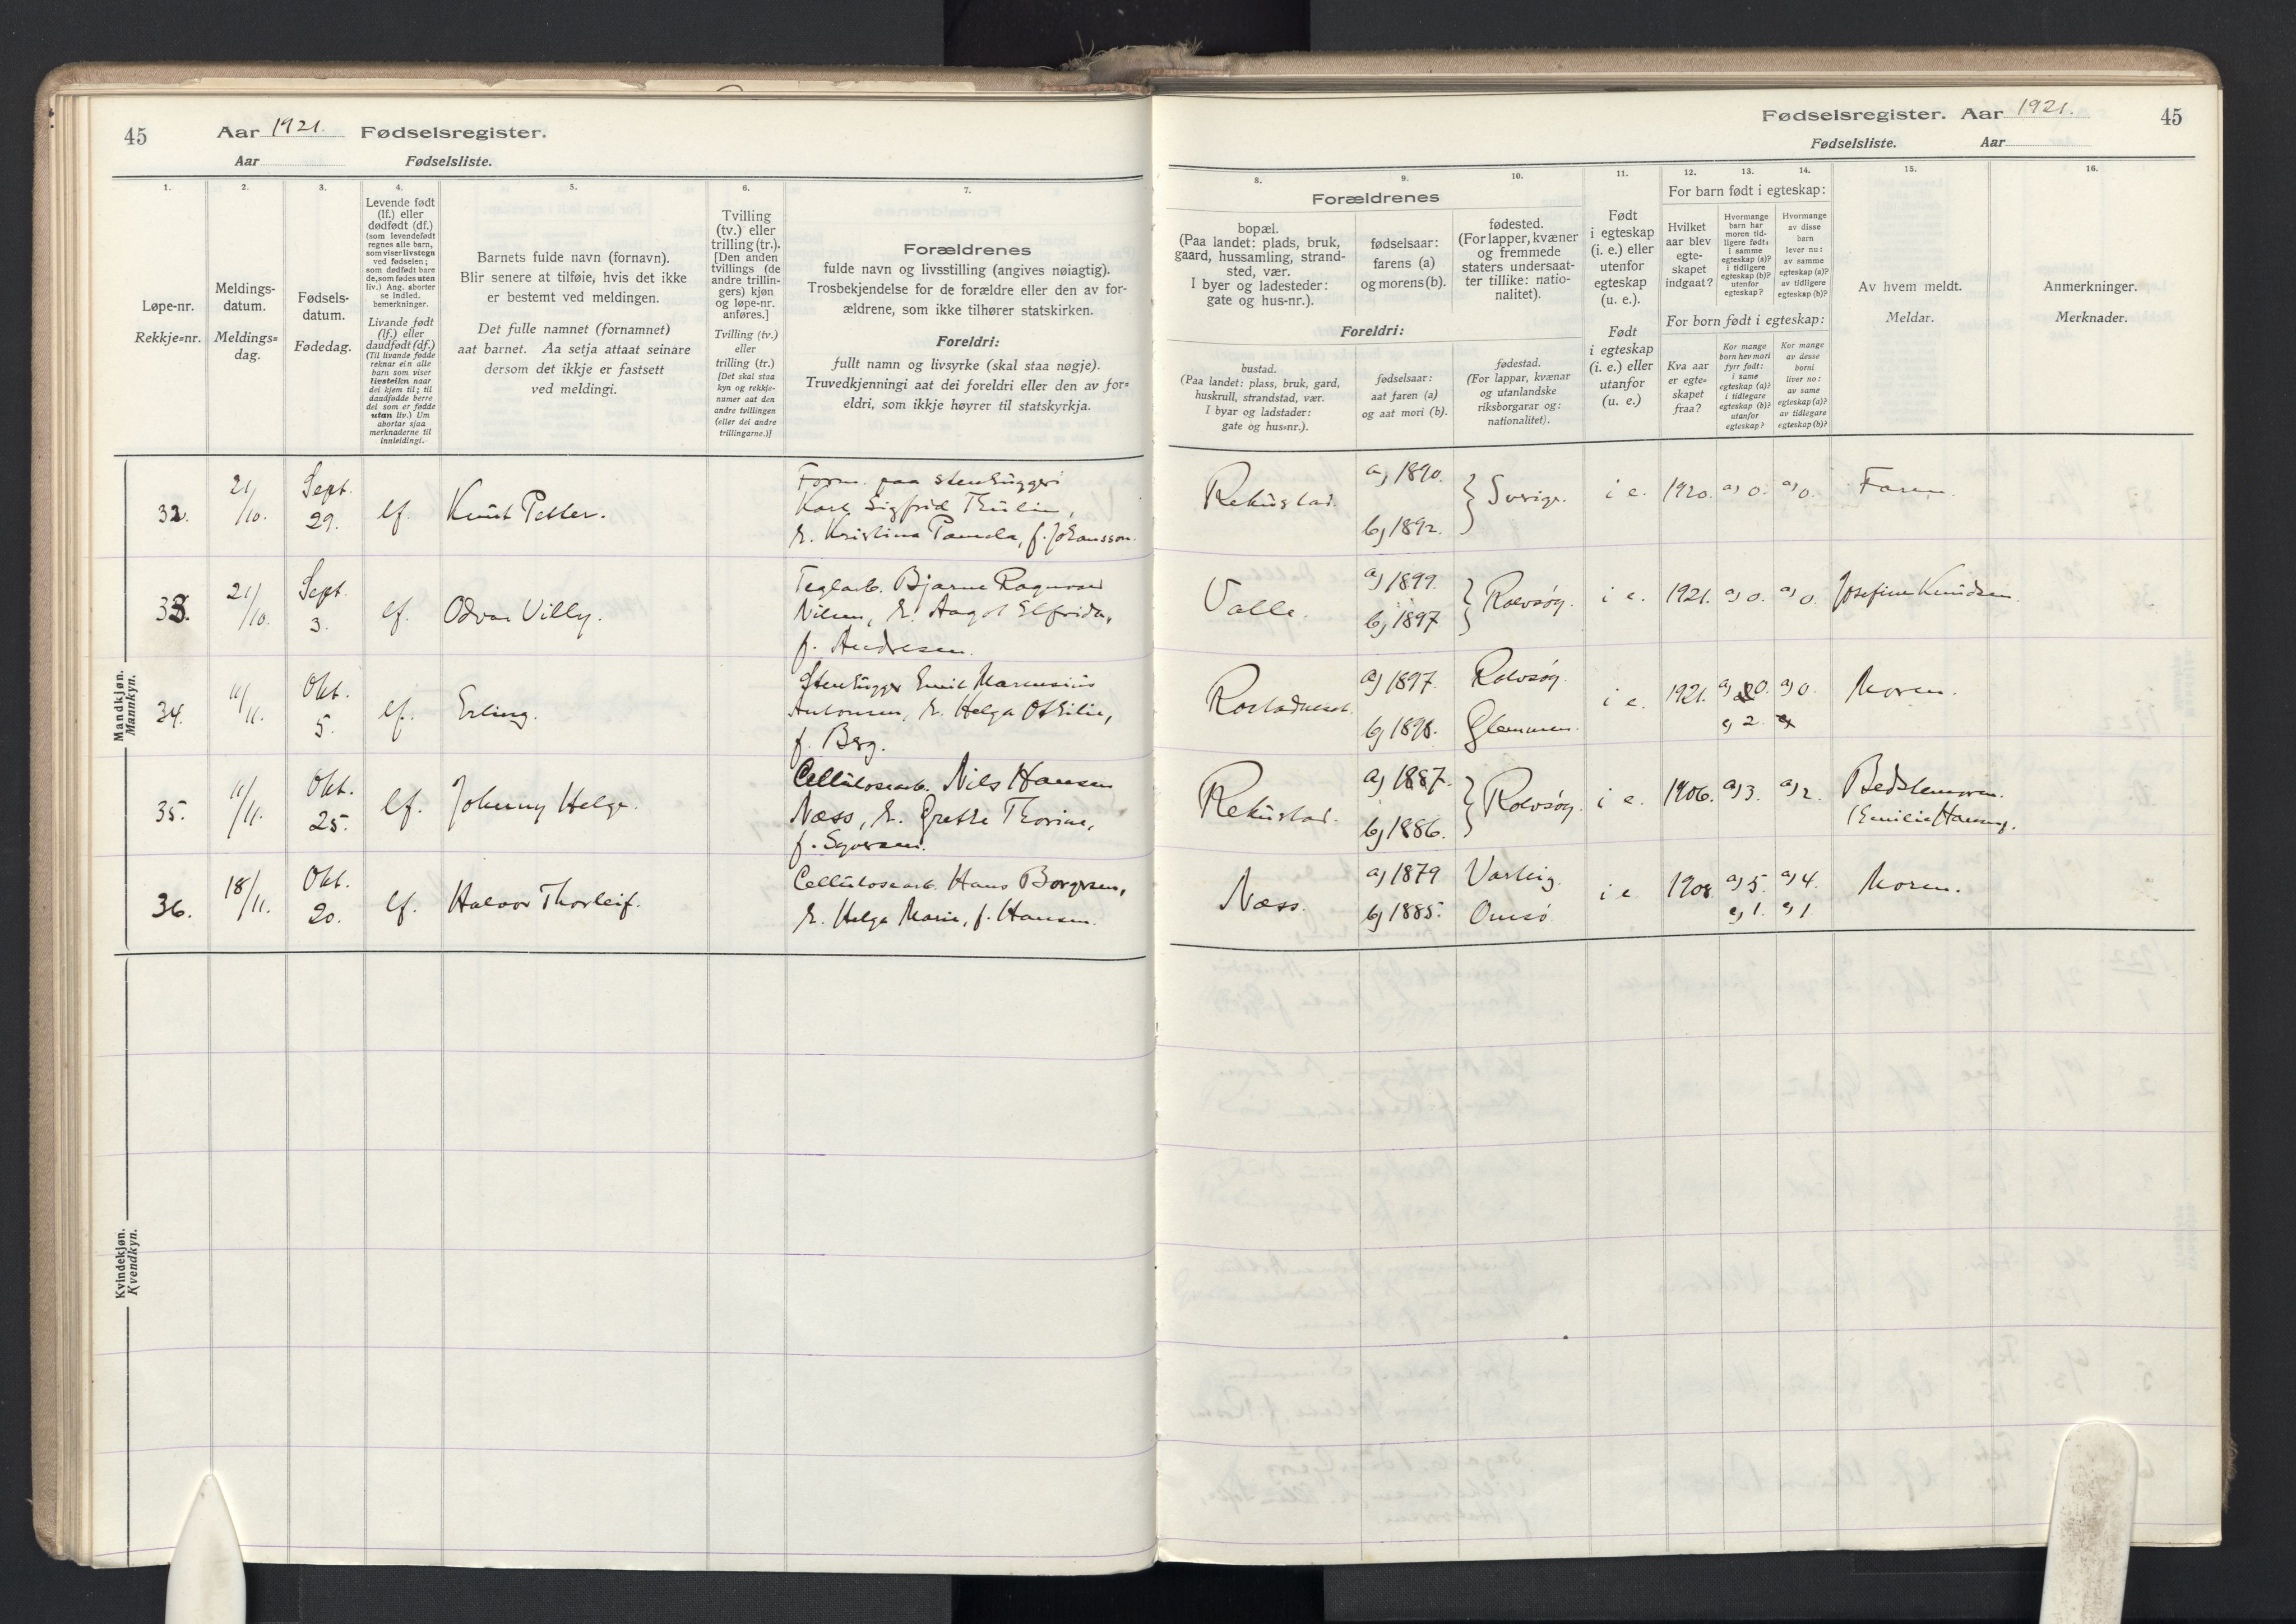 45
Aar 1921. Fødselsregister.
Aar Fødselsliste.
Fødselsregister. Aar 1921.
Fødselsliste. Aar
45
1.
Løpe-nr.
Rekkje=nr.
2.
Meldings-
datum.
Meldings=
dag.
3.
Fødsels-
datum.
Fødedag.
4.
Levende født
(lf.) eller
dødfødt (df.)
(som levendefødt
regnes alle barn,
som viser livstegn
ved fødselen;
som dødfødt bare
de, som fødes uten
liv.) Ang. aborter
se indled.
bemerkninger.
Livande født
(lf.) eller
daudfødt (df.)
(Til livande fødde
reknar ein alle
barn som viser
livsteikn naar
dei kjem til; til
daudfødde berre
dei som er fødde
utan liv.) Um
abortar sjaa
merknaderne til
innleidingi.
5.
Barnets fulde navn (fornavn).
Blir senere at tilføie, hvis det ikke
er bestemt ved meldingen.
Det fulle namnet (fornamnet)
aat barnet. Aa setja attaat seinare
dersom det ikkje er fastsett
ved meldingi.
6.
Tvilling
(tv.) eller
trilling (tr.).
[Den anden
tvillings (de
andre trillin-
gers) kjøn
og løpe-nr.
anføres.]
Tvilling (tv.)
eller
trilling (tr.)
[Det skal staa
kyn og rekkje-
numer aat den
andre tvillingen
(eller dei andre
trillingarne.)]
7.
Forældrenes
fulde navn og livsstilling (angives nøiagtig).
Trosbekjendelse for de forældre eller den av for-
ældrene, som ikke tilhører statskirken.
Foreldri:
fullt namn og livsyrke (skal staa nøgje).
Truvedkjenningi aat dei foreldri eller den av for=
eldri, som ikkje høyrer til statskyrkja.
Forældrenes
8.
bopæl.
(Paa landet: plads, bruk,
gaard, hussamling, strand-
sted, vær.
I byer og ladesteder:
gate og hus-nr.).
9.
fødselsaar:
farens (a)
og morens (b).
10.
fødested.
(For lapper, kvæner
og fremmede
staters undersaat-
ter tillike: natio-
nalitet).
Foreldri:
bustad.
(Paa landet: plass, bruk, gard,
huskrull, strandstad, vær.
I byar og ladstader:
gate og hus=nr.).
fødselsaar:
aat faren (a)
og aat mori (b).
fødestad.
(For lappar, kvænar
og utanlandske
riksborgarar og:
nationalitet).
11.
Født
i egteskap
(i. e.) eller
utenfor
egteskap
(u. e.).
Født
i egteskap
(i. e.) eller
utanfor
(u. e.)
12. 13. 14.
For barn født i egteskap:
Hvilket
aar blev
egte-
skapet
indgaat?
Hvormange
barn har
moren tid-
ligere født:
i samme
egteskap (a)?
i tidligere
egteskap (b)?
utenfor
egteskap?
Hvormange
av disse
barn
lever nu:
av samme
egteskap (a)?
av tidligere
egteskap (b)?
For born født i egteskap:
Kva aar
er egte=
skapet
fraa?
Kor mange
born hev mori
fyrr født:
i same
egteskap (a)?
i tidlegare
egteskap (b)?
utanfor
egteskap?
Kor mange
av desse
borni
liver no:
av same
egteskap (a)?
av tidlegare
egteskap (b)?
15.
Av hvem meldt.
Meldar.
16.
Anmerkninger.
Merknader.
Mandkjøn.
Mannkyn.
32. 21/10. Sept. 29. lf. Knut Petter.
Form. paa stenhuggeri
Karl Sigfrid Thulin,
h. Kristina Pamela, f. Johansson.
Rekustad. a) 1890. b) 1892. Sverige. i e. 1920. a) 0. a) 0. Faren.
33. 21/10. Sept. 3. lf. Odvar Villy.
Teglarb. Bjarne Ragnvard
Nilsen, h. Aagot Elfrida,
f. Andresen.
Valle. a) 1899. b) 1897 Rolvsøy. i e. 1921. a) 0. a) 0. Josefine Knudsen.
34. 11/11. Okt. 5. lf. Erling.
Stenhugger Emil Marensius
Antonsen, h. Helga Othilie,
f. Berg.
a) 1897. b) 1898. Rolvsøy. Glemmen. i e. 1921. a) 0. a) 0. Moren.
c) 2.
35. 11/11. Okt. 25. lf. Johnny Helge.
Cellulosearb. Nils Hansen
Næss, h. Grethe Thorine,
f. Syversen.
Rekustad. a) 1887. b) 1886. Rolvsøy. i e. 1906. a) 3. a) 2. Bedstemoren.
(Emilie Hansen).
36. 18/11. Okt. 20. lf. Halvor Thorleif.
Cellulosearb. Hans Borgersen,
h. Helga Marie, f. Hansen.
Næss. a) 1879 b) 1885. Varteig. Onsø. i e. 1908. a) 5. a) 4. Moren.
c) 1. c) 1
Kvindekjøn.
Kvendkyn.